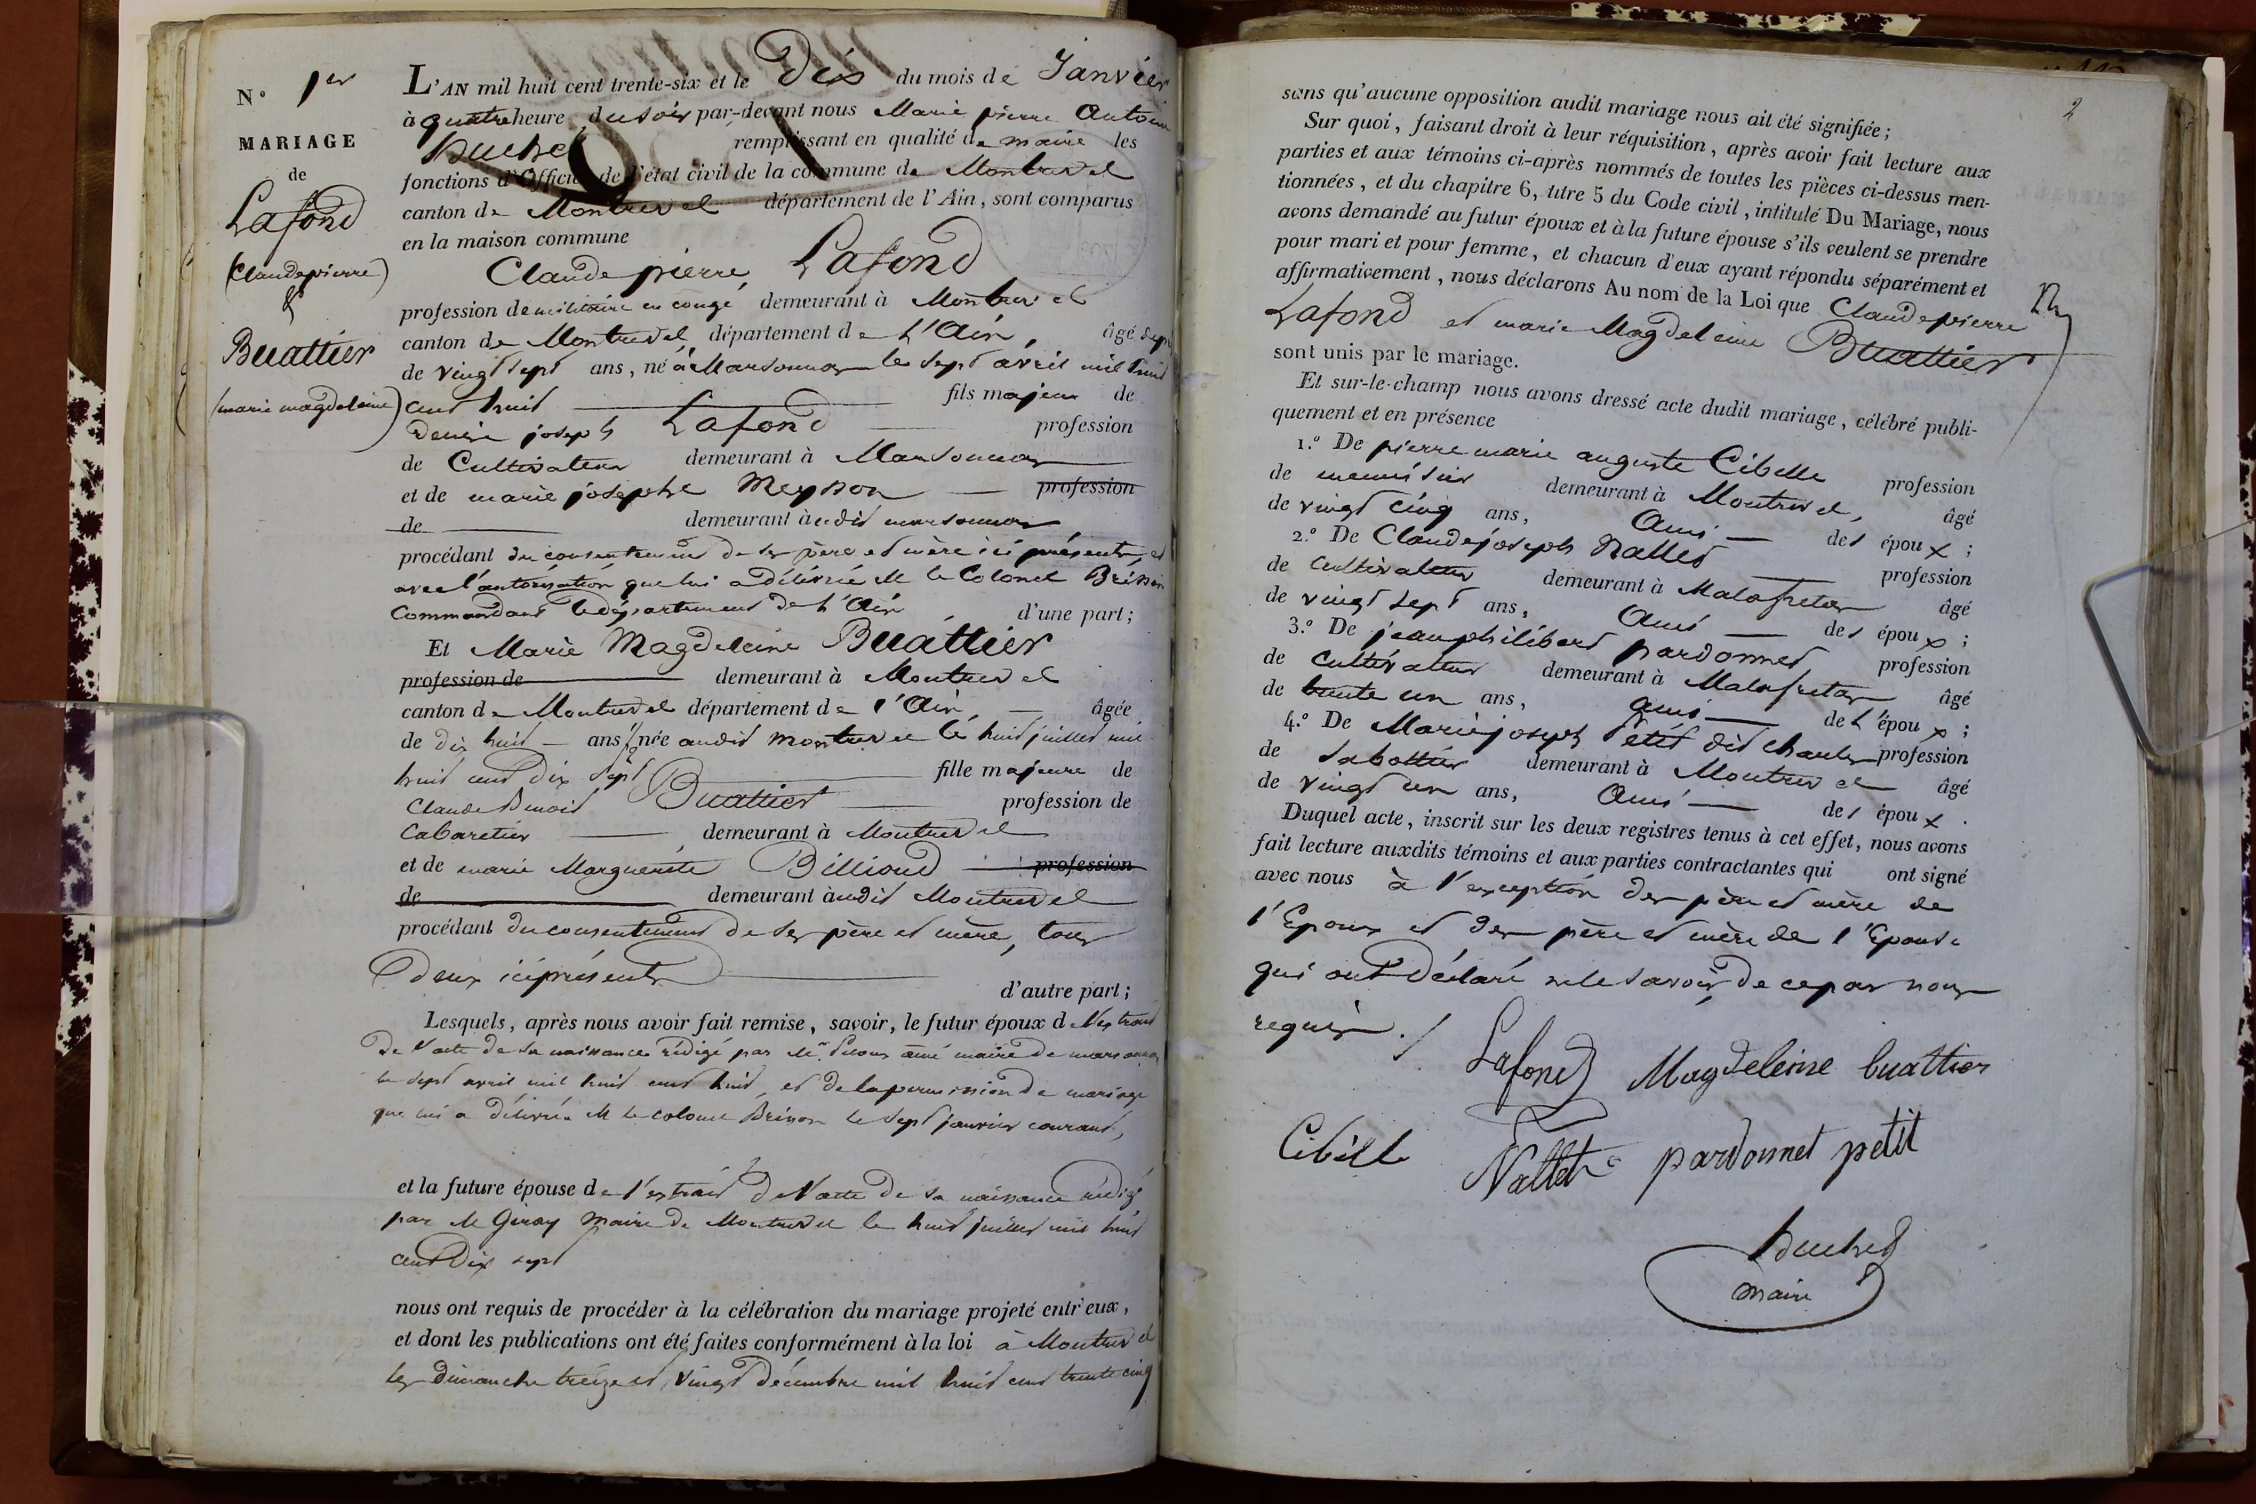 N.º 1er
MARIAGE
de
Lafond
(Claude pierre)
&
Buattier
(marie magdeleine)
L'AN mil huit cent trente-six et le Dix du mois de Janvier
à quatre heure du soir par-devant nous Marie pierre Antoine
remplissant en qualité de maire les
fonctions d'Officier de l'état civil de la commune de Montrevel
canton de Montrevel département de l'Ain, sont comparus
en la maison commune
Claude pierre Lafond
profession de militaire en congé demeurant à Montrevel
canton de Montrevel département de L'Ain, âgé
de vingt sept ans, né à Marsonnas le sept avril mil huit
cent huit fils majeur de
joseph Lafond profession
de Cultivateur demeurant à Marsonnas
et de marie josephe Meysson profession
de demeurant audit marsonnas
procédant du consentement de ses père et mère ici présents, et
avec l'autorisation que lui a délivrée M le Colonel Brisson
Commandant le département de L'Ain d'une part;
Et Marie Magdeleine Buattier
profession de demeurant à Montrevel
canton de Montrevel département de l'Ain âgée
de dix huit ans, née audit Montrevel le huit juillet mil
huit cent dix sept fille majeure de
Claude Benoit Buattier profession de
Cabaretier demeurant à Montrevel
et de marie Marguerite Billioud profession
de demeurant audit Montrevel
procédant du consentement de ses père et mère, tous
deux ici présents
d'autre part;
Lesquels, après nous avoir fait remise, savoir, le futur époux de l'extrait
de l'acte de sa naissance rédigé par Mr. maire de marsonnas
le sept avril mil huit cent huit, et de la permission de mariage
que lui a délivrée M le colonel Brisson le sept janvier courant,
et la future épouse de l'extrait de l'acte de sa naissance rédigé
par M Giroy maire de Montrevel le huit juillet mil huit
cent dix sept
nous ont requis de procéder à la célébration du mariage projeté entr'eux,
et dont les publications ont été faites conformément à la loi à Montrevel
les Dimanche treize et vingt décembre mil huit cent trente cinq
2
sans qu'aucune opposition audit mariage nous ait été signifiée;
Sur quoi, faisant droit à leur réquisition, après avoir fait lecture aux
parties et aux témoins ci-après nommés de toutes les pièces ci-dessus men-
tionnées, et du chapitre 6, titre 5 du Code civil, intitulé Du Mariage, nous
avons demandé au futur époux et à la future épouse s'ils veulent se prendre
pour mari et pour femme, et chacun d'eux ayant répondu séparément et
affirmativement, nous déclarons Au nom de la Loi que Claude pierre
Lafond et marie Magdeleine Buattier
sont unis par le mariage.
Et sur-le-champ nous avons dressé acte dudit mariage, célébré publi-
quement et en présence
1.º De pierre marie auguste Cibelle profession
de menuisier demeurant à Montrevel, âgé
de vingt cinq ans, Ami des époux;
2.º De Claude joseph Nallet profession
de cultivateur demeurant à Malafretaz âgé
de vingt sept ans, Ami des époux;
3.º De jean philibert pardonnet profession
de cultivateur demeurant à Malafretaz âgé
de trente un ans, ami de l'époux;
4.º De Marie joseph Petit dit charles profession
de Sabottier demeurant à Montrevel âgé
de vingt un ans, Ami des époux.
Duquel acte, inscrit sur les deux registres tenus à cet effet, nous avons
fait lecture auxdits témoins et aux parties contractantes qui ont signé
avec nous à l'exception des père et mère de
l'Epoux et des père et mère de l'Epouse
qui ont déclaré ne le savoir de ce par nous
requis ./
Lafond Magdeleine buattier
Cibelle Nallet pardonnet petit
maire